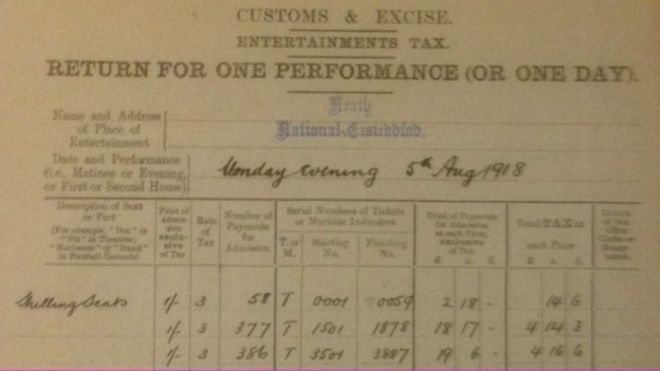 CUSTOMS & EXCISE.
ENTERTAINMENTS TAX.
RETURN FOR ONE PERFORMANCE (OR ONE DAY).
Name and Address of Place of Entertainment
Neath
National Eisteddfod.
Date and Performance (i.e., Matinee or Evening, or First or Second House)
Monday Evening 5th Aug 1918
Description of Seat or Part
(For example, "Box" or "Pit" in Theatres; "Enclosure" or "Stand" in Football Grounds)
Price of Admission exclusive of Tax
Rate of Tax
Number of Payments for Admission
Serial Numbers of Tickets or Machine Indicators
T. or M.
Starting No.
Finishing No.
Total of Payments for Admission at each Price, exclusive of Tax
£ s. d.
Total TAX at each Price
£ s. d.
Shilling Seats 1/- 3 58 T 0001 0059 2 18 - 14 6
1/- 3 377 T 1501 1878 18 17 - 4 14 3
1/- 3 386 T 3501 3887 19 6 - 4 16 6